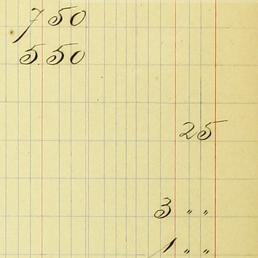 7 50
5 50
25
3 〃 〃
1 〃 〃